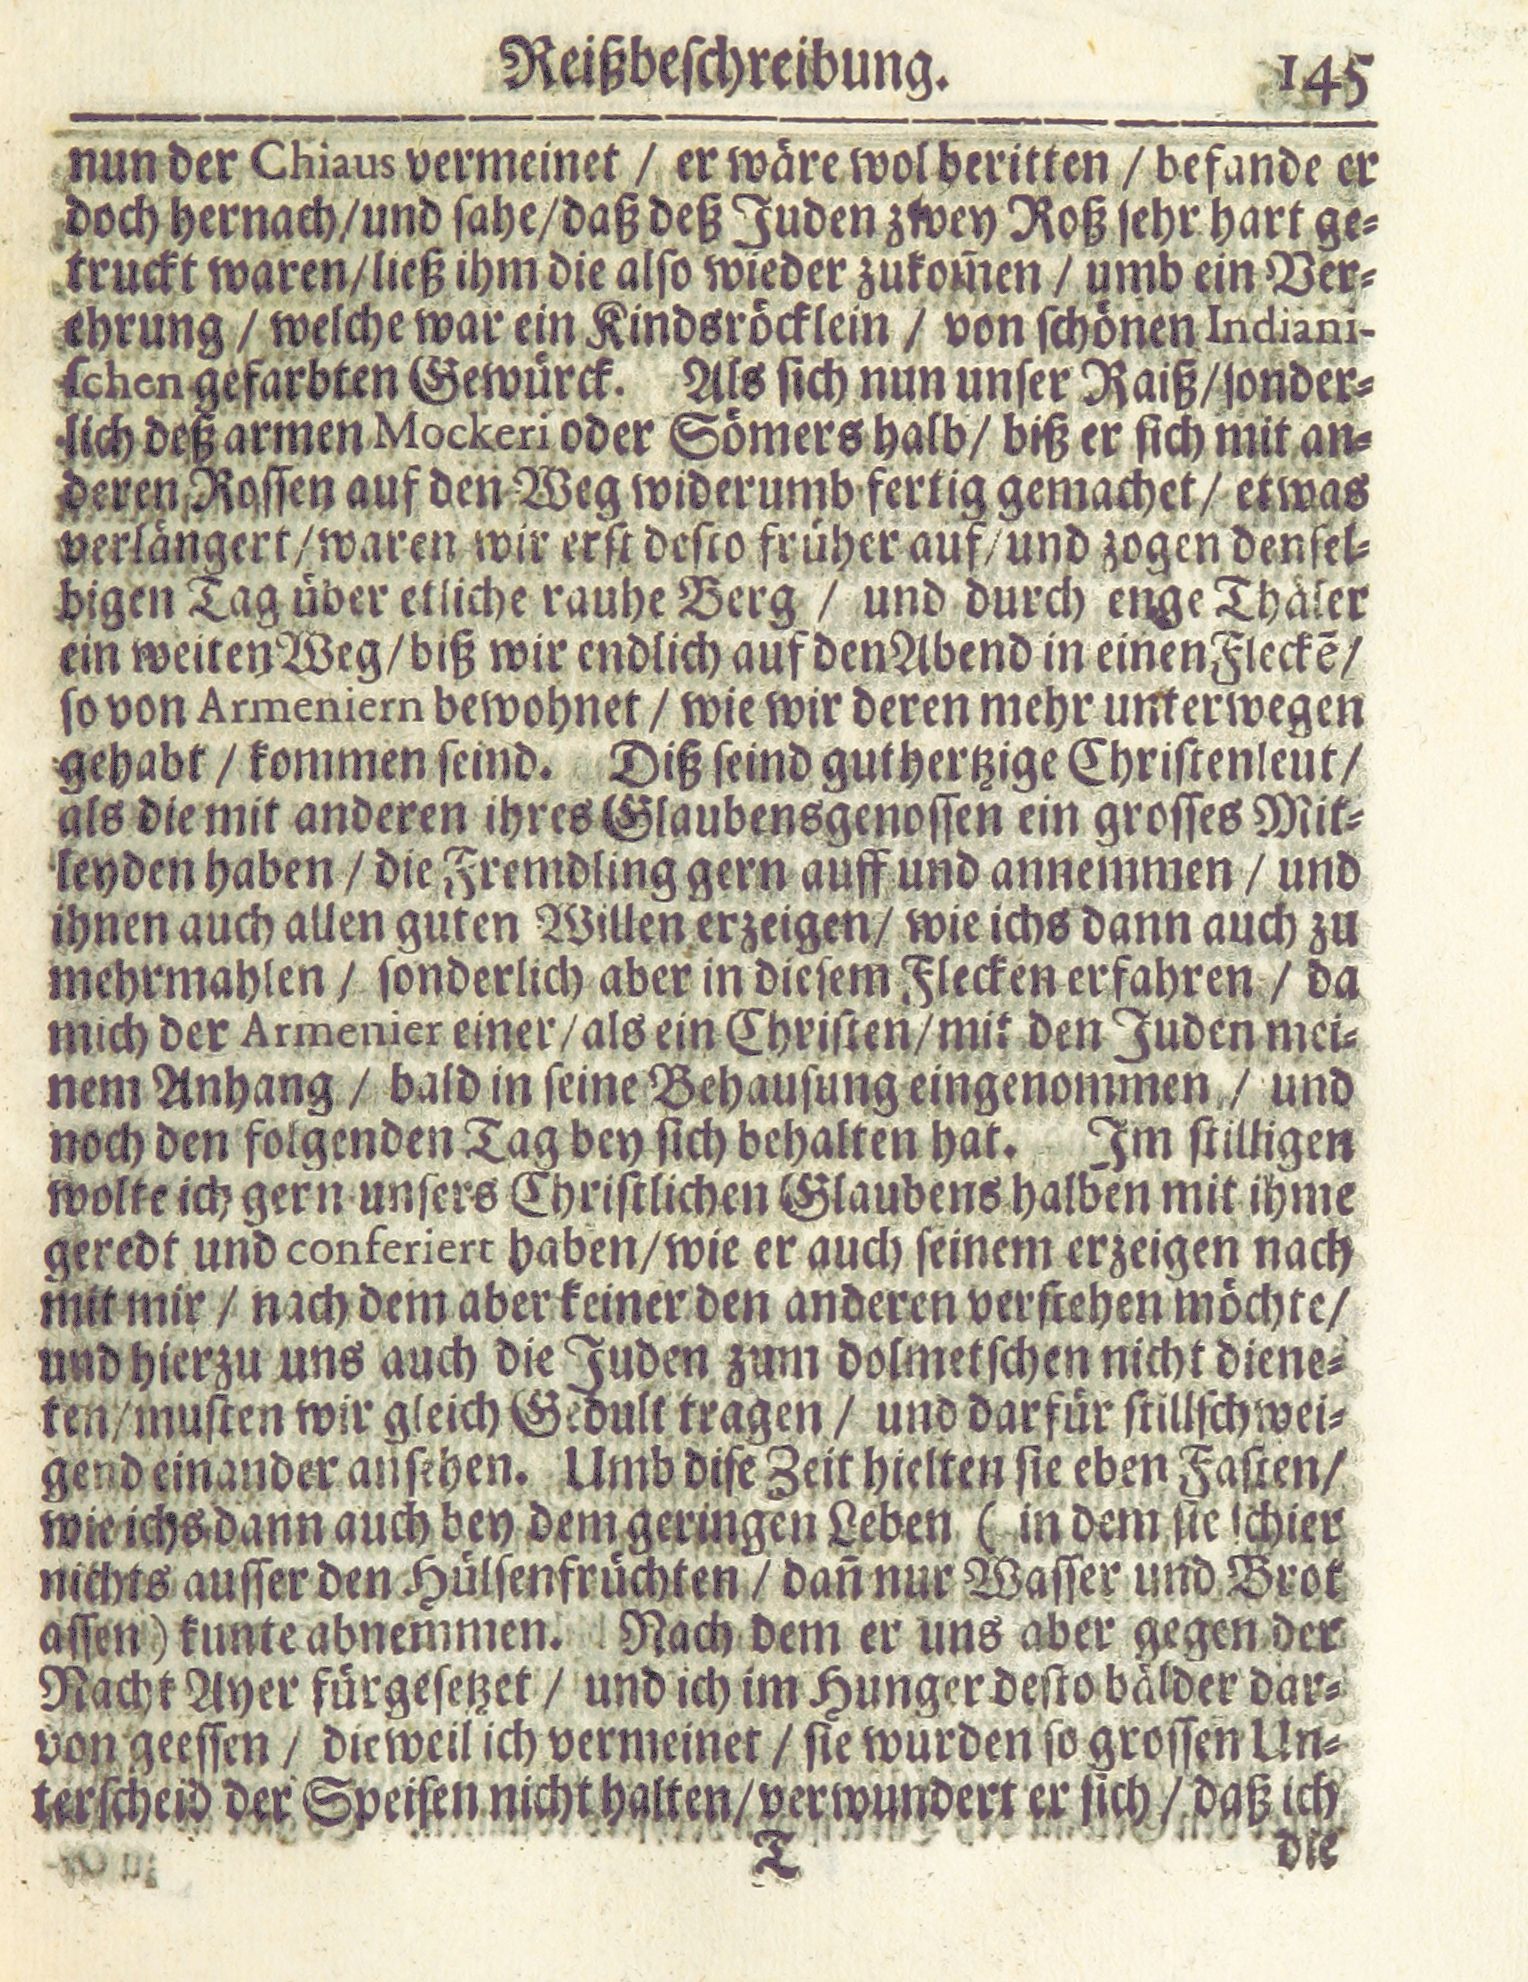 Reißbeſchreibung. 145
nun der Chiaus vermeinet / er wäre wol beritten / befande er
doch hernach/und ſahe/daß deß Juden zwey Roß ſehr hart ge-
truckt waren/ließ ihm die alſo wieder zukom̄en / umb ein Ver-
ehrung / welche war ein Kindsröcklein / von ſchönen Indiani-
ſchen gefarbten Gewürck. Als ſich nun unſer Raiß/ſonder-
lich deß armen Mockeri oder Sömers halb/ biß er ſich mit an-
deren Roſſen auf den Weg widerumb fertig gemachet/ etwas
verlängert/waren wir erſt deſto früher auf/und zogen denſel-
bigen Tag über etliche rauhe Berg / und durch enge Thäler
ein weiten Weg/biß wir endlich auf den Abend in einen Fleckē/
ſo von Armeniern bewohnet / wie wir deren mehr unterwegen
gehabt / kommen ſeind. Diß ſeind guthertzige Chriſtenleut/
als die mit anderen ihres Glaubensgenoſſen ein groſſes Mit-
leyden haben / die Fremdling gern auff und annemmen / und
ihnen auch allen guten Willen erzeigen/ wie ichs dann auch zu
mehrmahlen / ſonderlich aber in dieſem Flecken erfahren / da
mich der Armenier einer/als ein Chriſten/mit den Juden mei-
nem Anhang / bald in ſeine Behauſung eingenommen / und
noch den folgenden Tag bey ſich behalten hat. Im ſtilligen
wolte ich gern unſers Chriſtlichen Glaubens halben mit ihme
geredt und conferiert haben/wie er auch ſeinem erzeigen nach
mit mir / nach dem aber keiner den anderen verſtehen möchte/
und hierzu uns auch die Juden zum dolmetſchen nicht diene-
ten/muſten wir gleich Gedult tragen / und darfür ſtillſchwei-
gend einander anſehen. Umb diſe Zeit hielten ſie eben Faſten/
wie ichs dann auch bey dem geringen Leben ( in dem ſie ſchier
nichts auſſer den Hülſenfrüchten / dañ nur Waſſer und Brot
aſſen) kunte abnemmen. Nach dem er uns aber gegen der
Nacht Ayer fürgeſetzet / und ich im Hunger deſto bälder dar-
von geeſſen / dieweil ich vermeinet / ſie wurden ſo groſſen Un-
terſcheid der Speiſen nicht halten/verwundert er ſich / daß ich
T die